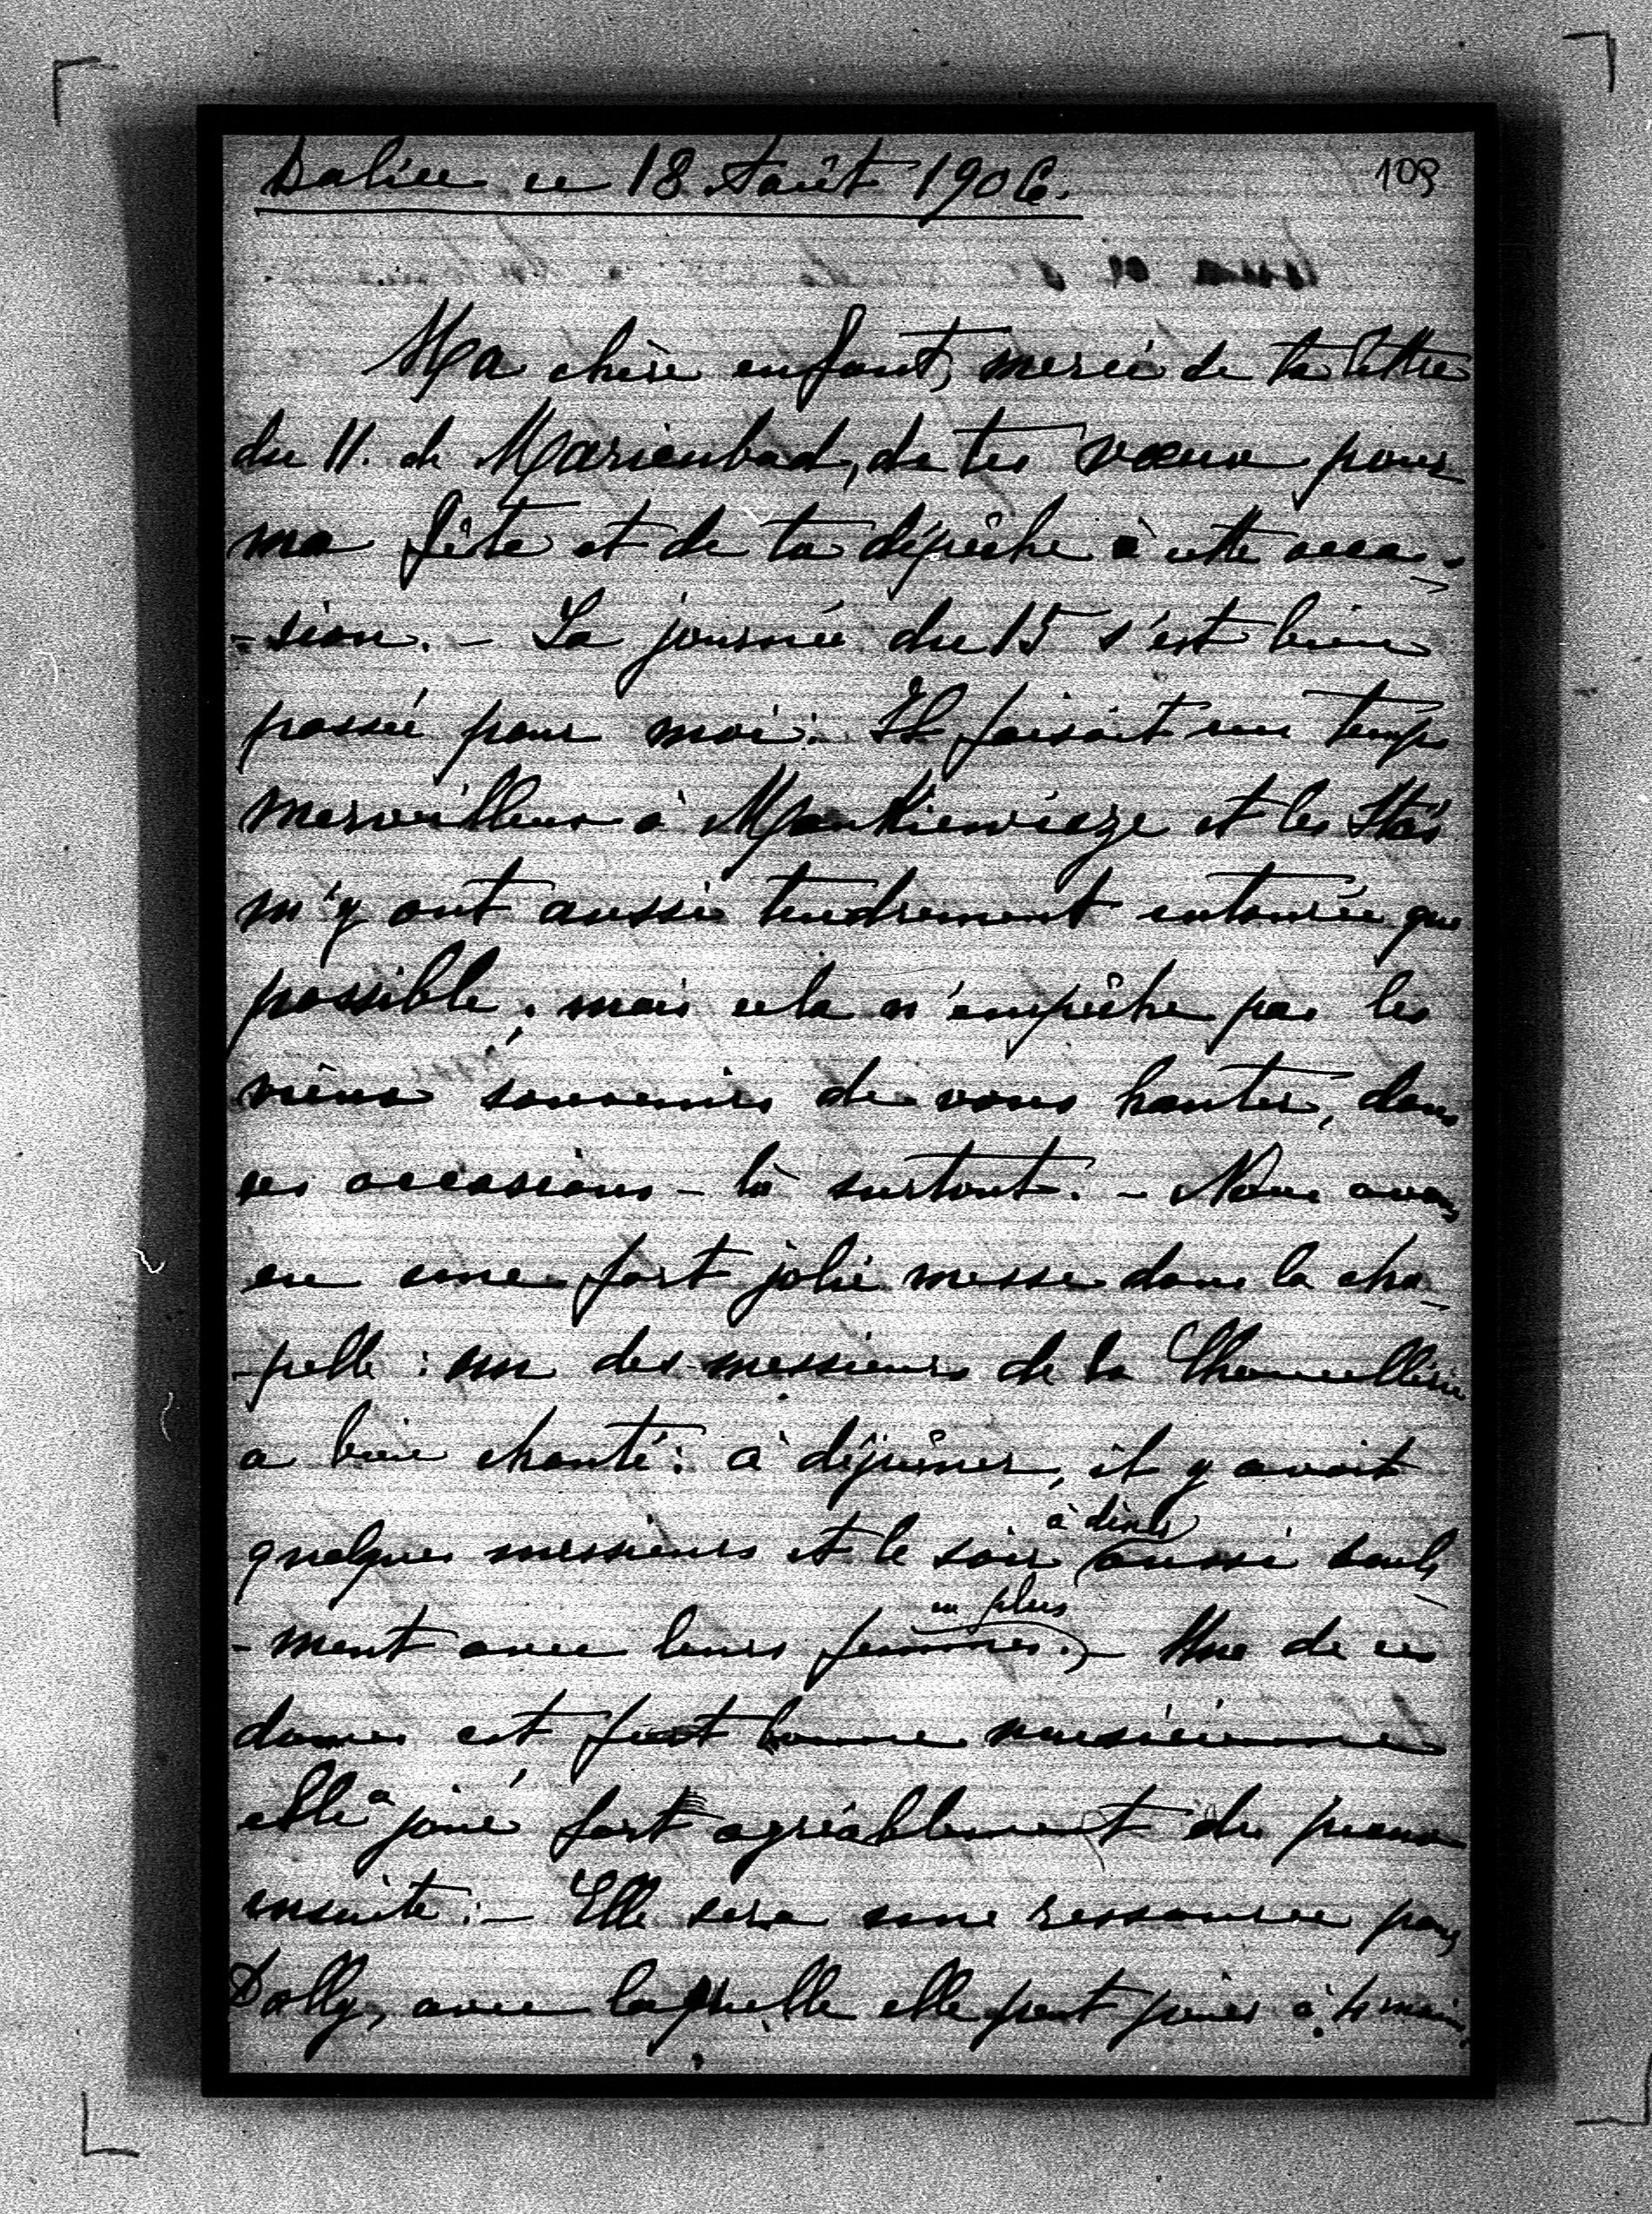 Dalin ce 18 Août 1906.
109
Ma chère enfant, merci de ta lettre
du 11. de Marienbad, de tes vœux pour
ma fête et de ta dépêche à cette occa-
-sion. - La journée du 15 s'est bien
passée pour moi: Il faisait un temps
merveilleux à Mankiewicze et les Stas
m'y ont aussi tendrement entourée que
possible; mais cela n'empêche pas les
vieux souvenirs de vous hanter, dans
ces occasions-là surtout. - Nous avons
eu une fort jolie messe dans la cha-
-pelle: un des messieurs de la Chancellerie
a bien chanté: à déjeuner, il y avait
quelques messieurs et le soir à dîner aussi seule-
-ment avec leurs femmes en plus. - Une de ces
dames est fort bonne musicienne
elle a joué fort agréablement du piano
ensuite: - Elle sera une ressource pour
Dolly, avec laquelle elle peut jouer à 4 mains.